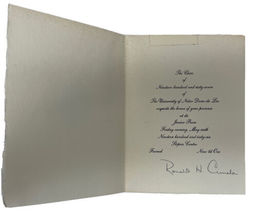 The Class
of
Nineteen hundred and sixty seven
of
The University of Notre Dame du Lac
requests the honor of your presence
at its
Junior Prom
Friday evening, May
Nineteen hundred and sixty-six
Stepan Center
Formal Nine 'til One
Ronald H